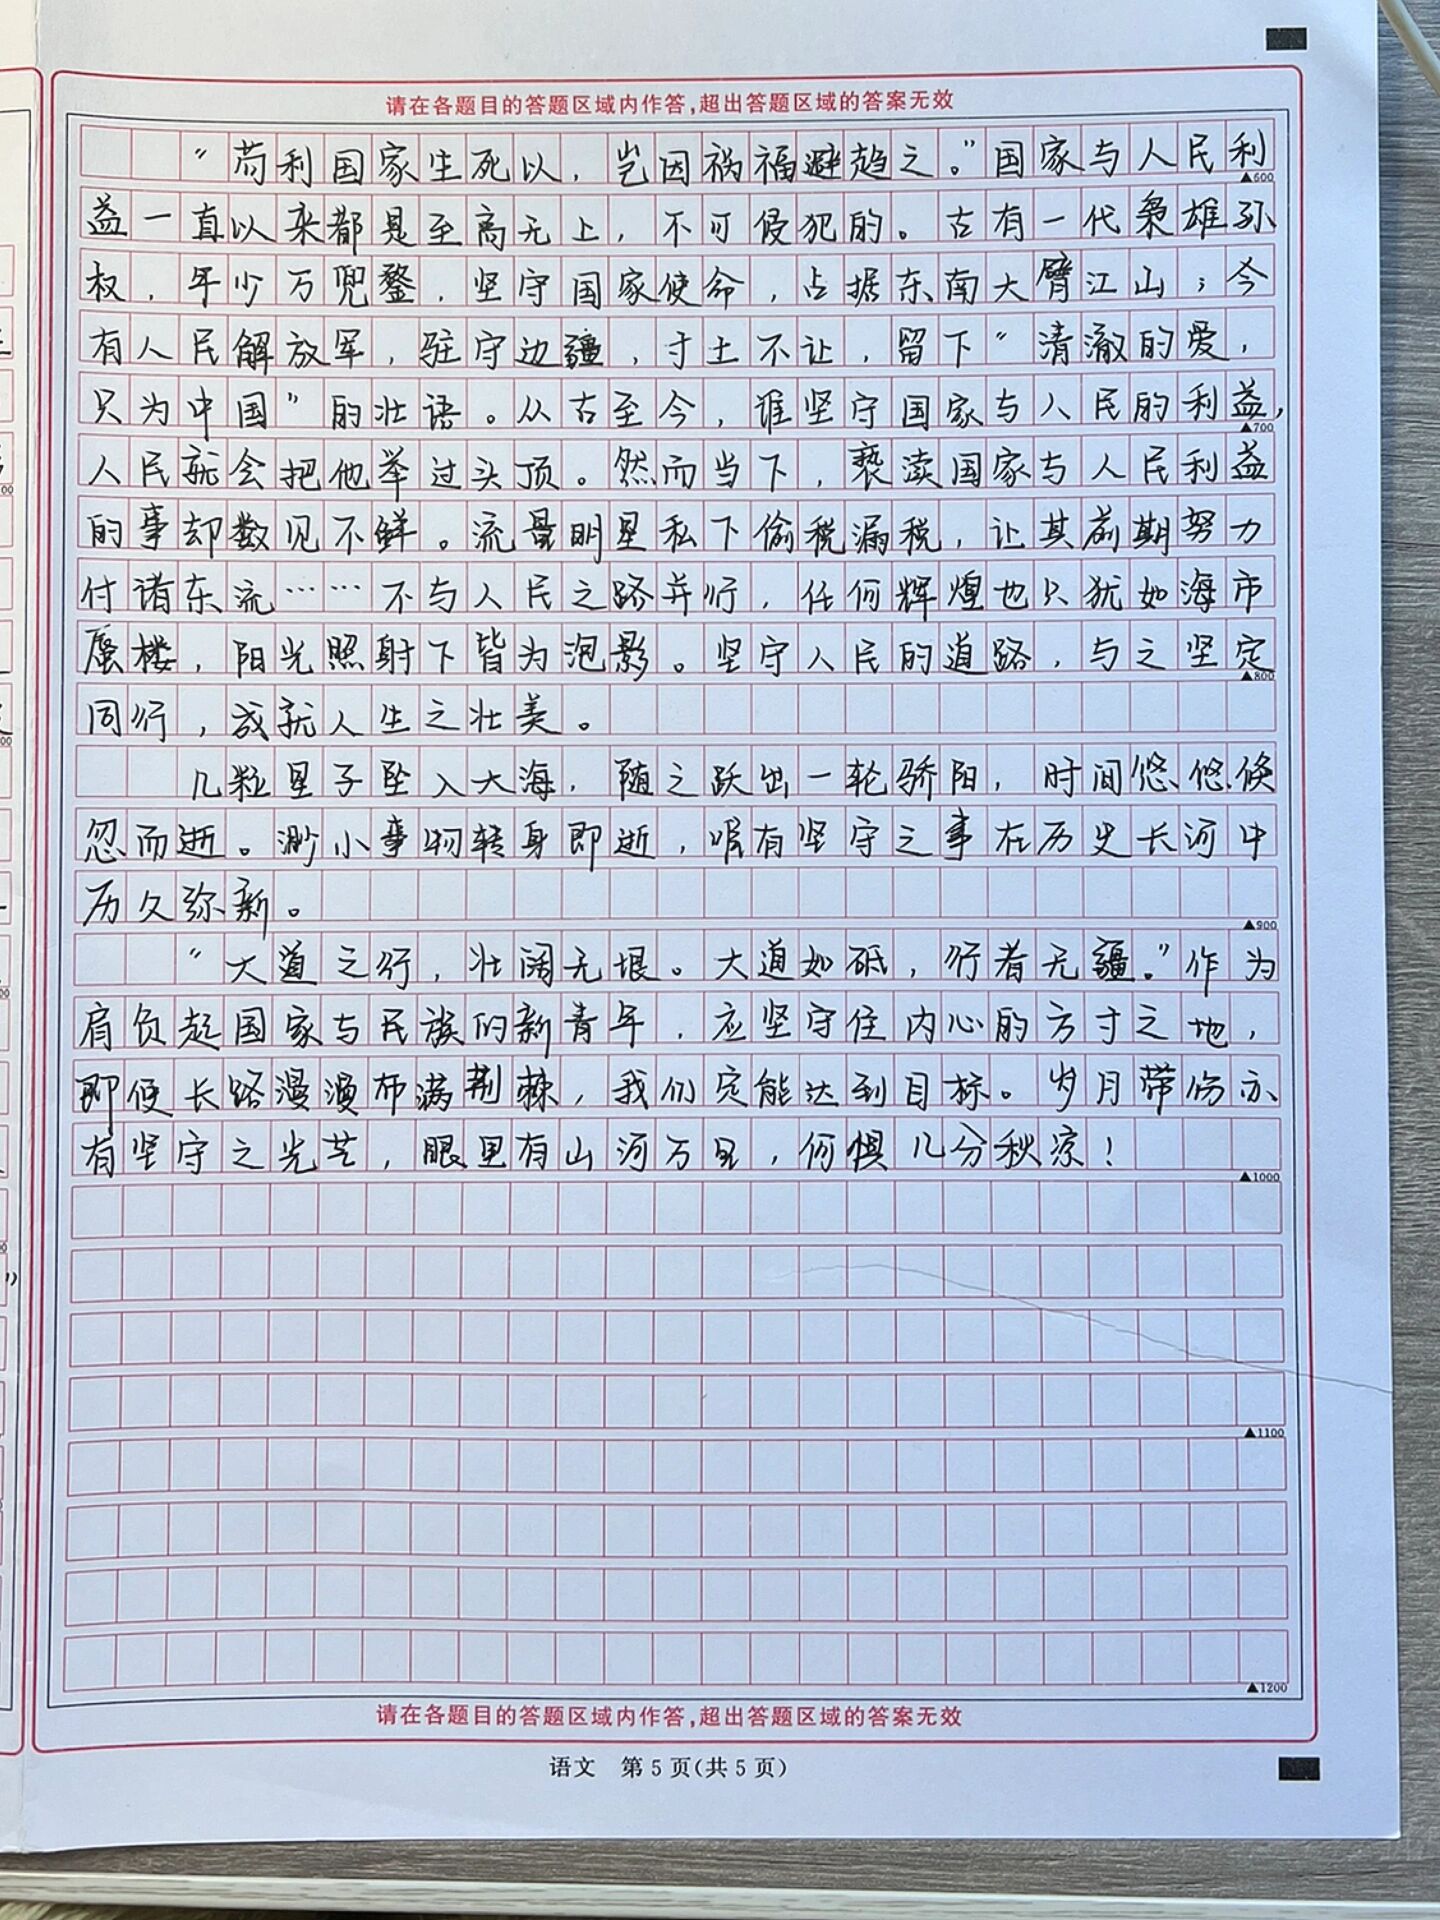 请在各题目的答题区域内作答,超出答题区域的答案无效
“苟利国家生死以，岂因祸福避趋之。”国家与人民利
▲600
益一直以来都是至高无上，不可侵犯的。古有一代枭雄孙
权，年少万兜鍪，坚守国家使命，占据东南大臂江山；今
有人民解放军，驻守边疆，寸土不让，留下“清澈的爱，
只为中国”的壮语。从古至今，谁坚守国家与人民的利益，
▲700
人民就会把他举过头顶。然而当下，亵渎国家与人民利益
的事却数见不鲜。流量明星私下偷税漏税，让其前期努力
付诸东流……不与人民之路并行，任何辉煌也只犹如海市
蜃楼，阳光照射下皆为泡影。坚守人民的道路，与之坚定
▲800
同行，成就人生之壮美。
几粒星子坠入大海，随之跃出一轮骄阳，时间悠悠倏
忽而逝。渺小事物转身即逝，唯有坚守之事在历史长河中
历久弥新。
▲900
“大道之行，壮阔无垠。大道如砥，行者无疆。”作为
肩负起国家与民族的新青年，应坚守住内心的方寸之地，
即使长路漫漫布满荆棘，我们定能达到目标。岁月带伤亦
有坚守之光芒，眼里有山河万里，何惧几分秋凉！
▲1000
▲1100
▲1200
请在各题目的答题区域内作答,超出答题区域的答案无效
语文 第5页(共5页)